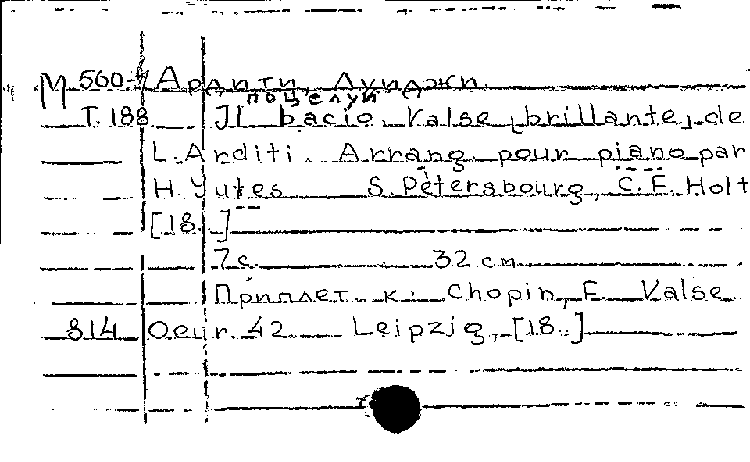 М 560-4 Ардити, Луиджи
поцелуй
Т. 188 Il bacio. Valse [brillante] de
L. Arditi. Arrang. pour piano par
H. Yutes S. Pétersbourg, C. F. Holtz
[18..]
7 с. 32 см
Приплет. к: Chopin, F. Valse
814 Oeuv. 42 Leipzig, [18..]